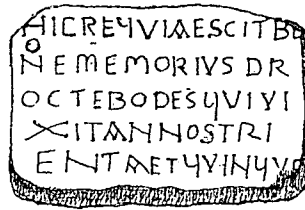 HICREQVIAESCITBO
NEMEMORIVS DR
OCTEBODES QVIVI
XITANNOSTRI
ENTAETQVINQVE